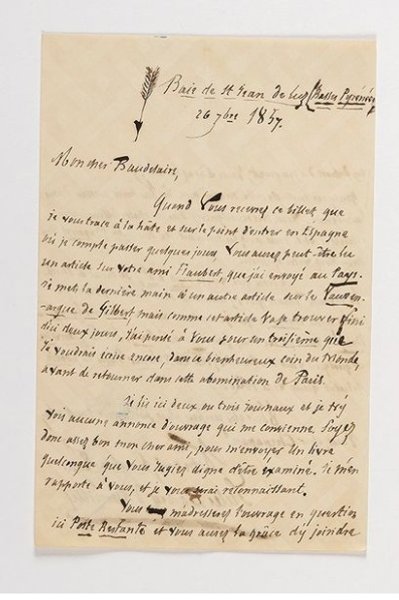 Baie de St Jean de Luz (Basses Pyrénées)
26 7bre 1857.
Mon cher Baudelaire,
Quand Vous recevrez ce billet que
je vous trace à la hâte et sur le point d'entrer en Espagne
où je compte passer quelques jours, Vous aurez peut-être lu
un article sur votre ami Flaubert, que j'ai envoyé au Pays.
Je met la dernière main à un autre article sur le Tauren-
-argue de Gilbert mais comme cet article va se trouver fini
d'ici deux jours, j'ai pensé à Vous pour un troisième que
Je voudrais écrire encore, dans ce bienheureux coin du Monde,
avant de retourner dans cette abomination de Paris.
Je lis ici deux ou trois journaux et je n'y
vois aucune annonce d'ouvrage qui me convienne. Soyez
donc assez bon mon cher ami, pour m'envoyer Un livre
quelconque que Vous jugiez digne d'être examiné. Je m'en
rapporte à vous, et je vous serai reconnaissant.
Vous m'adresserez l'ouvrage en question
ici Poste Restante et vous aurez la grâce d'y joindre